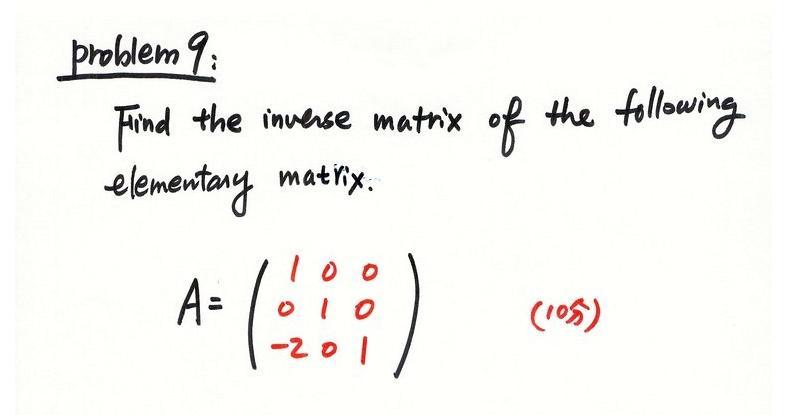 problem 9:
Find the inverse matrix of the following
elementary matrix.
A = ( 1 0 0
0 1 0
-2 0 1 )
(10分)